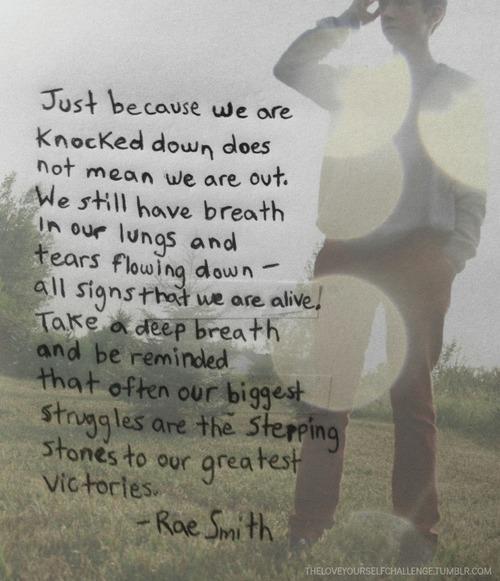 Just because we are
Knocked down does
not mean we are out.
We still have breath
in our lungs and
tears flowing down -
all signs that we are alive!
Take a deep breath
and be reminded
that often our biggest
struggles are the stepping
stones to our greatest
victories.
- Rae Smith
THELOVEYOURSELFCHALLENGE.TUMBLR.COM